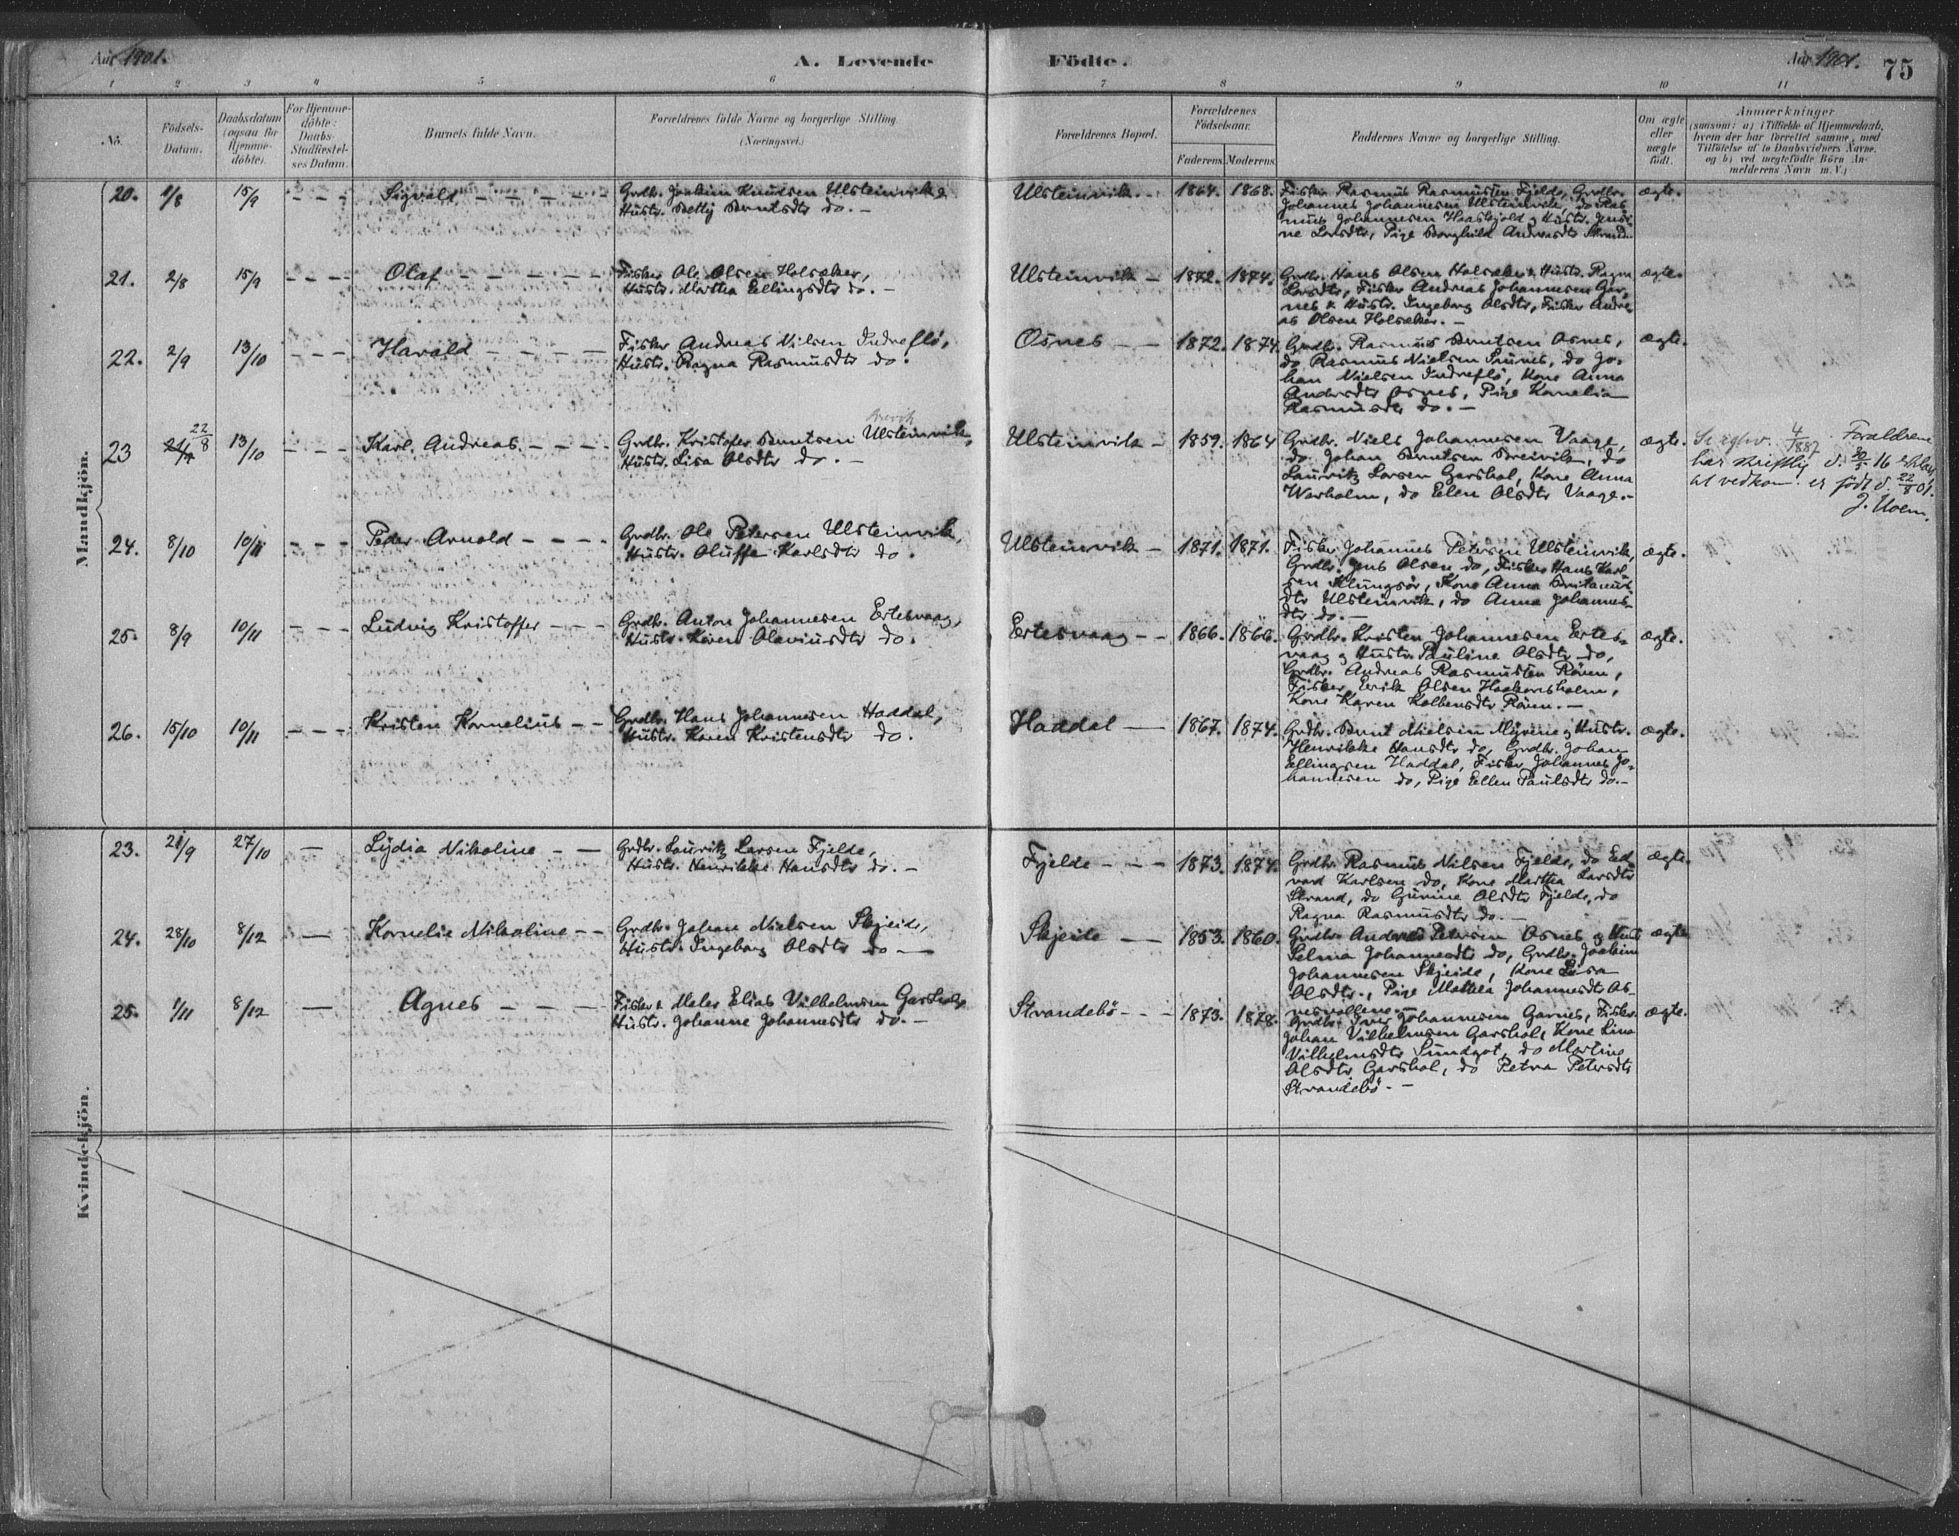 Aar 1901. A. Levende Födte. Aar 1901. 75
1 2 3 4 5 6 7 8 9 10 11
No. Födsels-Datum. Daabsdatum (ogsaa for Hjemmedöbte). For Hjemmedöbte: Daabs-Stadfæstelses Datum. Barnets fulde Navn. Forældrenes fulde Navne og borgerlige Stilling (Næringsvei.) Forældrenes Bopæl. Forældrenes Födselsaar. Faderens Moderens Faddernes Navne og borgerlige Stilling. Om ægte eller uægte födt. Anmærkninger
(saasom: a) i Tilfælde af Hjemmedaab, hvem der har forrettet samme, med Tilföielse af to Daabsvidners Navne, og b) ved uægtefödte Börn Anmelderens Navn m. V.)
Mandkjön.
20. 1/8 15/9 Sigvald Grdbr. Joakim Knudsen Ulsteinvik &
Hustr. Betty Berntsdtr do. Ulsteinvik. 1864. 1868. Fisker Rasmus Rasmussen Fjelde, Grdbr.
Johannes Johannesen Ulsteinvik, do Ras
mus Johannesen Haaskjold & Hustr. Jensi
ne Larsdtr, Pige Borghild Andreasdtr Strand. ægte.
21. 2/8 15/9 Olaf Fisker Ole Olsen Holsæker,
Hustr. Martha Ellingsdtr do. Ulsteinvik 1872. 1874. Grdbr. Hans Olsen Holsæker & Hustr. Ragna
Larsdtr, Fisker Andreas Johannesen Gar
nes & Hustr. Ingeborg Olsdtr, Fisker Andre
as Olsen Holsæker. ægte.
22. 2/9 13/10 Harald Fisker Andreas Nilsen Indreflö,
Hustr. Ragna Rasmusdtr do. Osnes 1872. 1874. Grdbr. Rasmus Berntsen Osnes,
do Rasmus Nielsen Saunes, do Jo-
han Nielsen Indreflö, Kone Anna
Andersdtr Osnes, Pige Kornelia
Rasmusdtr do. ægte.
23 22/8 13/10 Karl Andreas Grdbr. Kristofer Berntsen Ulsteinvik,
Hustr. Lisa Olsdtr do. Ulsteinvik 1859. 1864 Grdbr. Niels Johannesen Vaage,
do. Johan Berntsen Breivik, do
Lauritz Larsen Garshol, Kone Anna
Warholm, do Elen Olsdtr Vaage. ægte. 4/1887 Forældrene
har skriftlig d. 30/5 16 erklæret
at vedkom. er födt d. 22/8 01.
J. Hoem.
24. 8/10 10/11 Peder Arnold Grdbr. Ole Petersen Ulsteinvik,
Hustr. Oluffa Karlsdtr do. Ulsteinvik 1871. 1871. Fisker Johannes Petersen Ulsteinvik,
Grdbr. Jens Olsen do, Fisker Hans Karl
sen Klungsör, Kone Anna
dtr Ulsteinvik, do Anna Johannes
dtr do. ægte.
25. 8/9 10/11 Ludvig Kristoffer Grdbr. Anton Johannesen Ertesvaag,
Hustr. Karen Olaviusdtr do. Ertesvaag 1866. 1866. Grdbr. Kristen Johannesen Ertes-
vaag & Hustr. Pauline Olsdtr do,
Grdbr. Andreas Rasmussen Rören,
Fisker Erik Olsen Haakonsholm,
Kone Karen Kolbensdtr Rören. ægte.
26. 15/10 10/11 Kristen Kornelius Grdbr. Hans Johannesen Haddal,
Hustr. Karen Kristensdtr do. Haddal 1867. 1874. Grdbr. Bernt Nielsen Myrene & Hustr.
Henrikke Hansdtr do, Grdbr. Johan
Ellingsen Haddal, Fisker Johannes Jo-
hannesen do, Pige Ellen Paulsdtr do. ægte.
Kvindekjön.
23. 21/9 27/10 Lydia Nikoline Grdbr. Lauritz Larsen Fjelde,
Hustr. Henrikke Hansdtr do. Fjelde 1873. 1874. Grdbr. Rasmus Nilsen Fjelde, do Ed
vard Karlsen do, Kone Martha Larsdtr
Strand, do Gurine Olsdtr Fjelde, do
Ragna Rasmusdtr do. ægte.
24. 28/10 8/12 Kornelie Nikoline Grdbr. Johan Nielsen Skjeide,
Hustr. Ingeborg Olsdtr do Skjeide 1853. 1860. Grdbr. Andreas Petersen Osnes & Hustr
Selma Johannesdtr do, Grdbr. Joakim
Johannesen Skjeide, Kone Lisa
Olsdtr., Pige Mathea Johannesdtr Os-
nesvollene. ægte
25. 1/11 8/12 Agnes Fisker & Maler Elias Vilhelmsen Garshol &
Hustr. Johanne Johannesdtr do. Strandebö 1873. 1878. Grdbr. Iver Johannesen Garnes, Fisker
Johan Vilhelmsen Garshol, Kone Lina
Vilhelmsdtr Sundgot, do Martine
Olsdtr Garshol, do Petra Petersdtr
Strandebö. ægte.